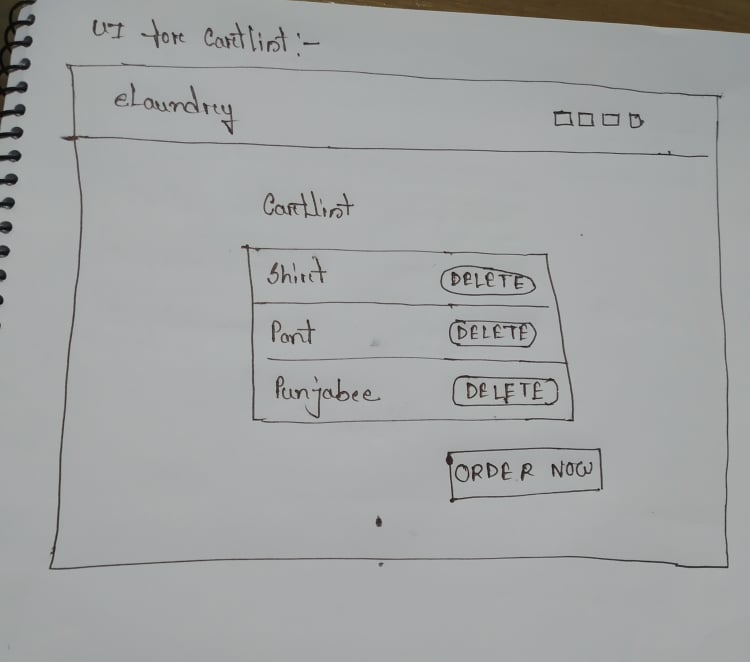 UI for Cartlist:-
eLaundry
Cartlist
Shirt DELETE
Pant DELETE
Punjabee DELETE
ORDER NOW